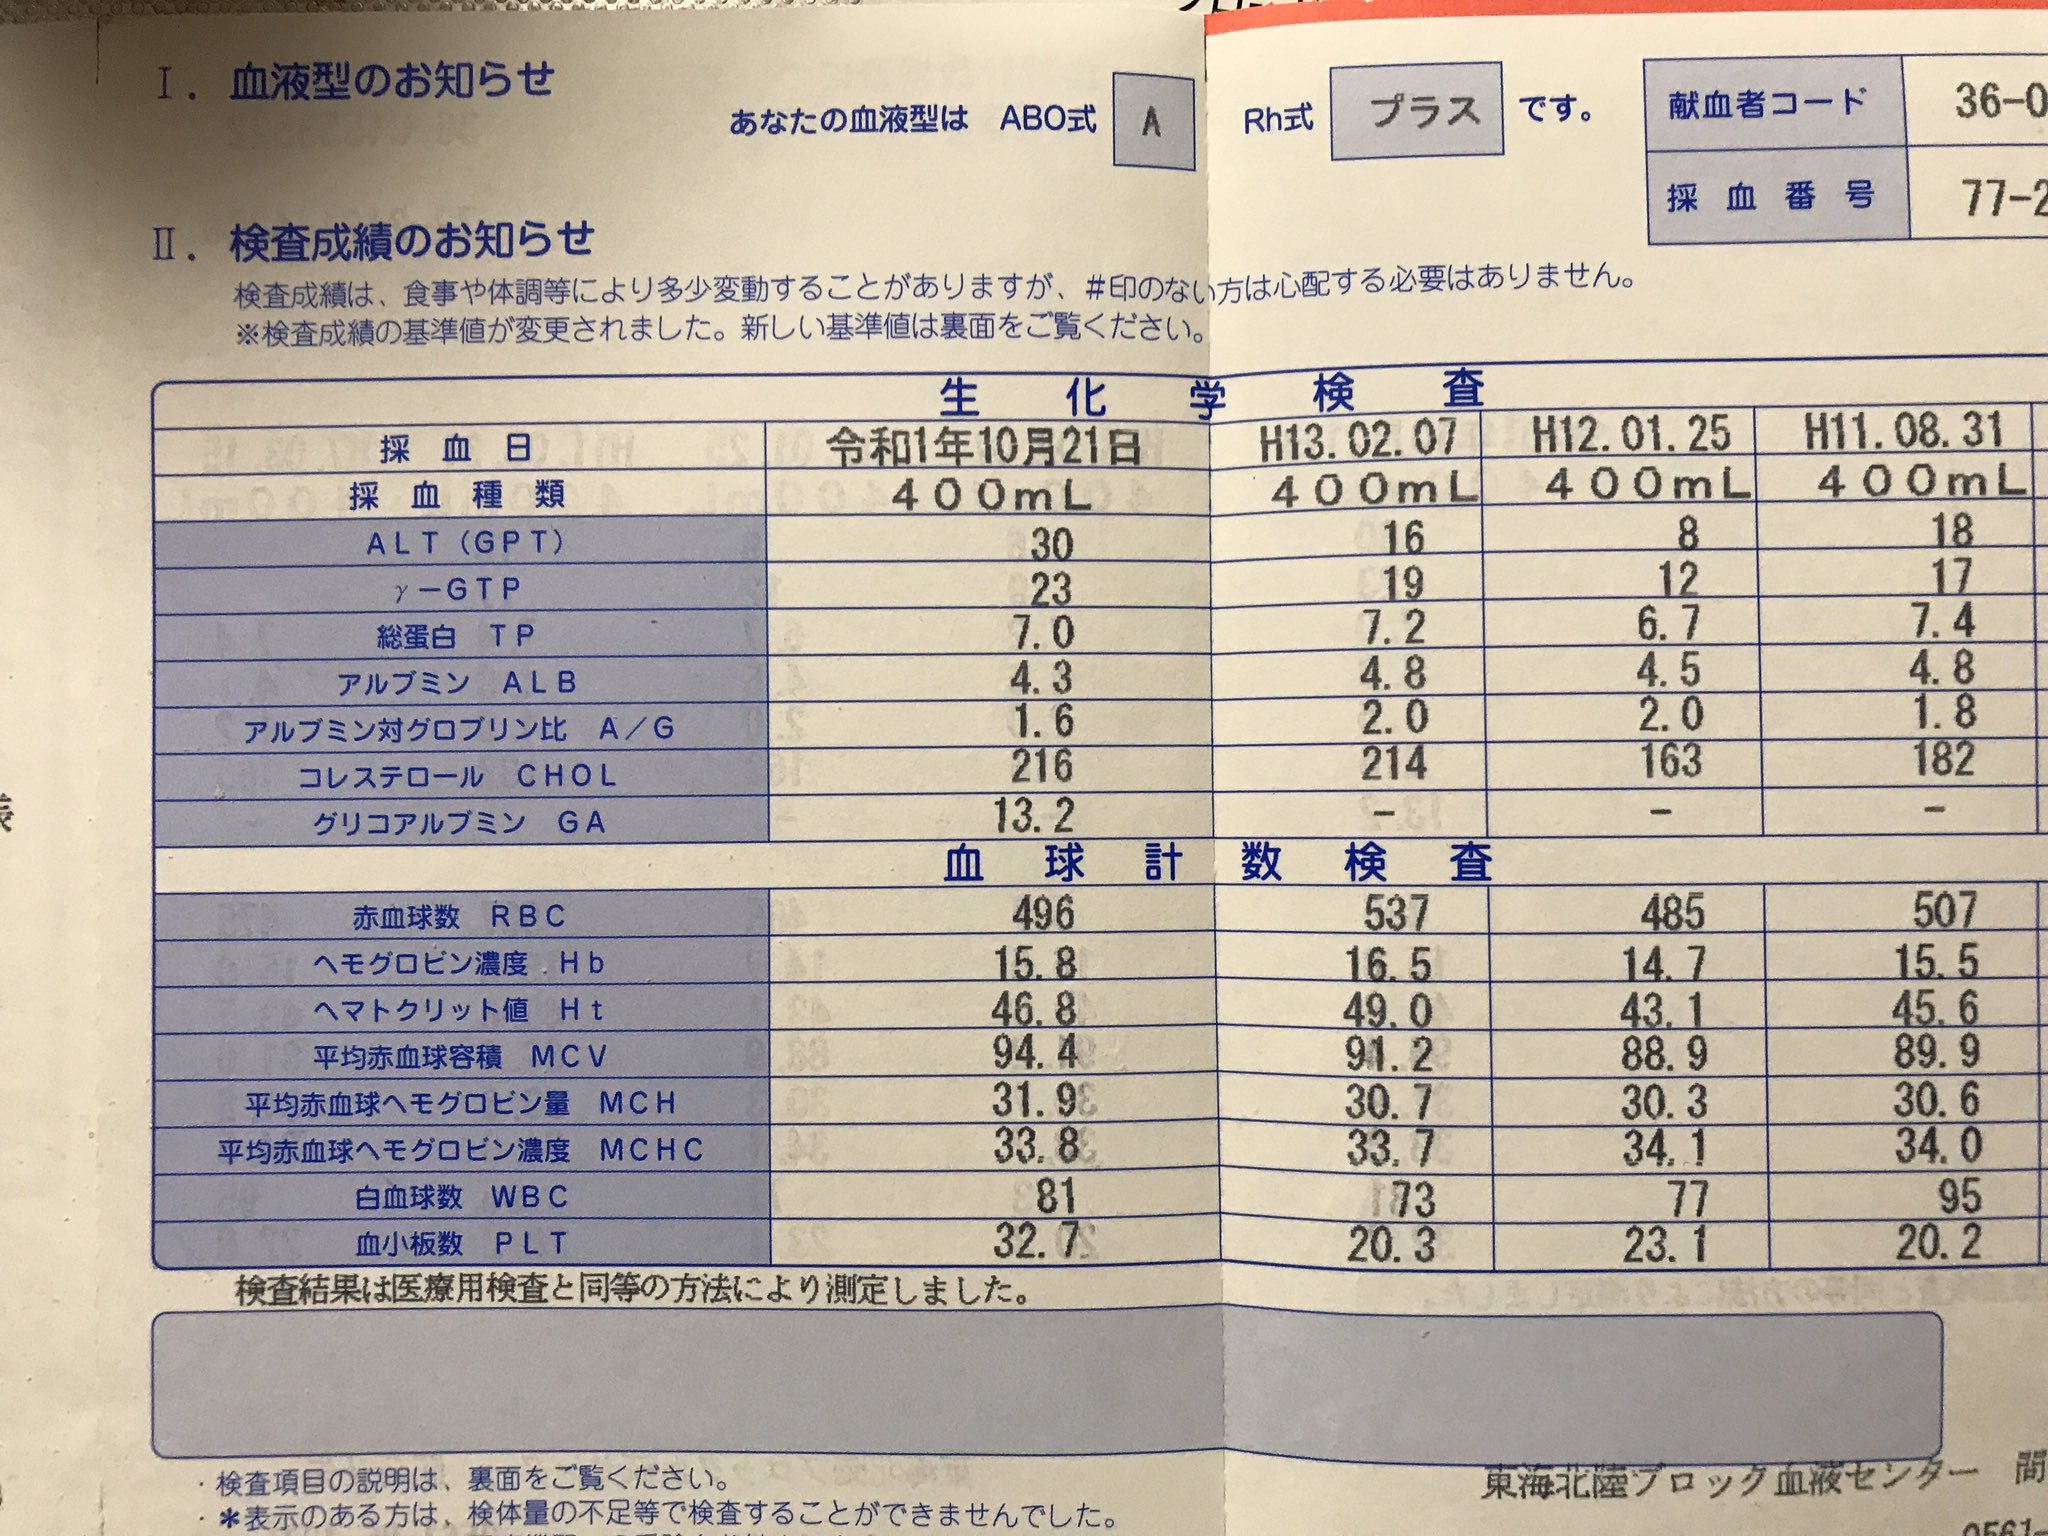 I. 血液型のお知らせ
あなたの血液型は ABO式 A Rh式 プラス です。
献血者コード 36-0
採血番号 77-2
II. 検査成績のお知らせ
検査成績は、食事や体調等により多少変動することがありますが、#印のない方は心配する必要はありません。
※検査成績の基準値が変更されました。新しい基準値は裏面をご覧ください。
生化学検査
採血日 令和1年10月21日 H13.02.07 H12.01.25 H11.08.31
採血種類 400mL 400mL 400mL 400mL
ALT(GPT) 30 16 8 18
γ-GTP 23 19 12 17
総蛋白 TP 7.0 7.2 6.7 7.4
アルブミン ALB 4.3 4.8 4.5 4.8
アルブミン対グロブリン比 A/G 1.6 2.0 2.0 1.8
コレステロール CHOL 216 214 163 182
グリコアルブミン GA 13.2 - - -
血球計数検査
赤血球数 RBC 496 537 485 507
ヘモグロビン濃度 Hb 15.8 16.5 14.7 15.5
ヘマトクリット値 Ht 46.8 49.0 43.1 45.6
平均赤血球容積 MCV 94.4 91.2 88.9 89.9
平均赤血球ヘモグロビン量 MCH 31.9 30.7 30.3 30.6
平均赤血球ヘモグロビン濃度 MCHC 33.8 33.7 34.1 34.0
白血球数 WBC 81 73 77 95
血小板数 PLT 32.7 20.3 23.1 20.2
検査結果は医療用検査と同等の方法により測定しました。
・検査項目の説明は、裏面をご覧ください。
東海北陸ブロック血液センター 問
・*表示のある方は、検体量の不足等で検査することができませんでした。
0561-